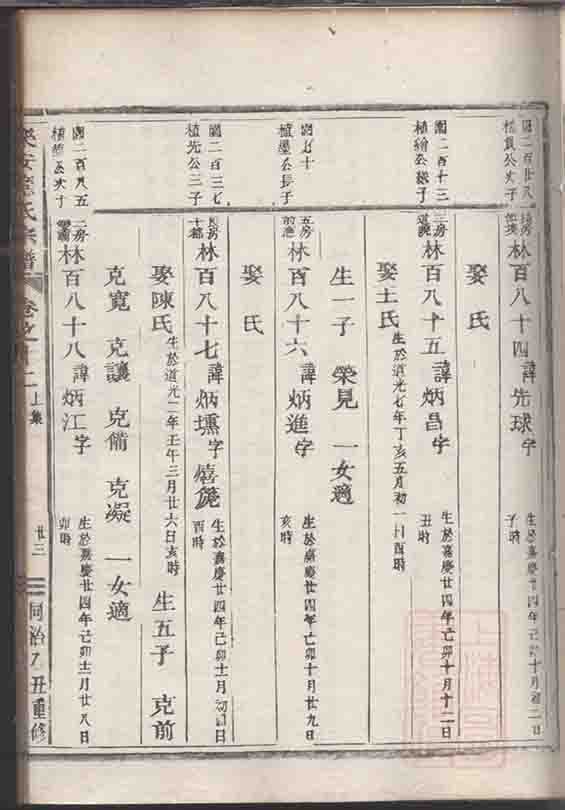 園二百廿八
植 公次子
林百八十四諱先球字
生於嘉慶廿四年己卯十月初二日
子時
娶 氏
園二百十三
植繪公 子
三房
林百八十五諱炳昌字
生於嘉慶廿四年己卯十月十二日
丑時
娶王氏 生於道光七年丁亥五月初一日酉時
生一子 榮見 一女適
園七十
植墨公長子
五房
林百八十六諱炳進字
生於嘉慶廿四年己卯十月廿九日
亥時
娶 氏
園二百三七
植先公三子
房
十都
林百八十七諱炳壎字
生於嘉慶廿四年己卯十一月初四日
酉時
娶陳氏 生於道光二年壬午三月廿六日亥時 生五子 克前
克寬 克讓 克備 克凝 一女適
園二百八五
植繪公次子
二房
林百八十八諱炳江字
生於嘉慶廿四年己卯十一月廿八日
卯時
氏宗譜 卷之 二 上集 廿三 同治乙丑重修